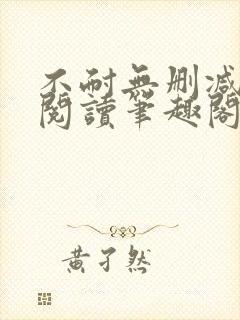 不耐無刪減
閱讀筆趣閣
黃子然